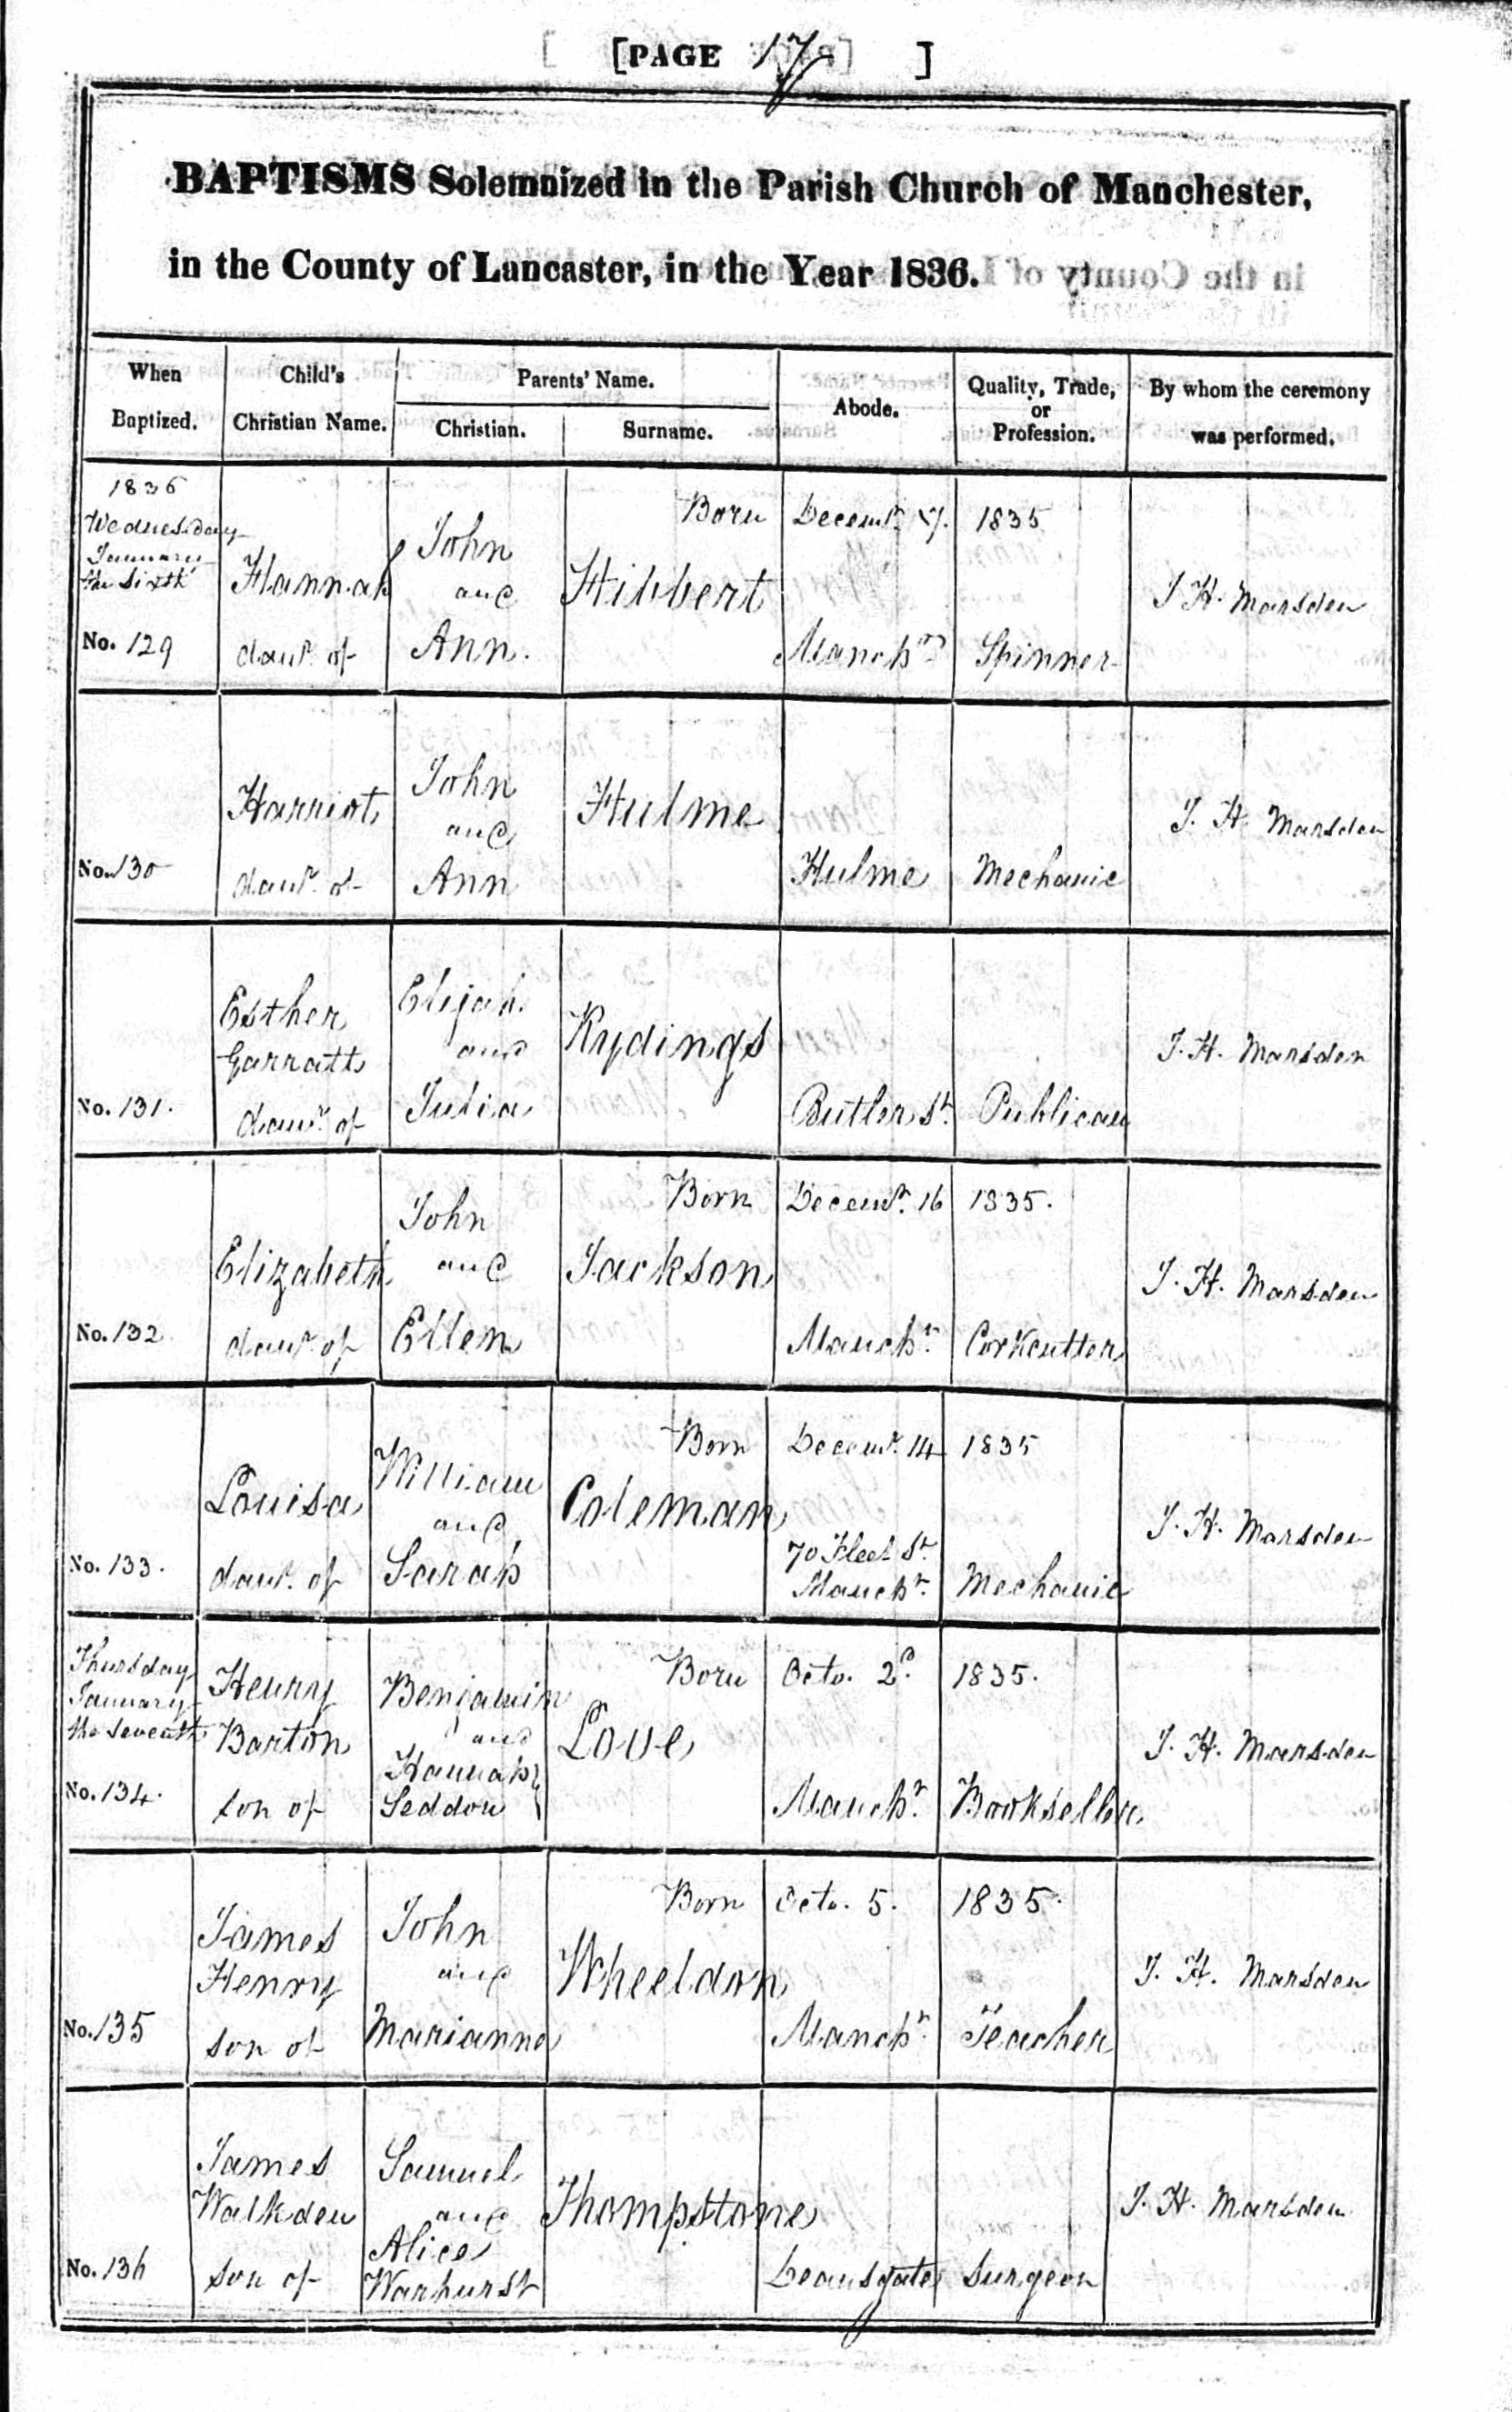 [PAGE 17 ]
BAPTISMS Solemnized in the Parish Church of Manchester,
in the County of Lancaster, in the Year 1836.
When Baptized.
Child's Christian Name.
Parents' Name.
Christian.
Surname.
Abode.
Quality, Trade, or Profession.
By whom the ceremony was performed.
1836
Wednesday
January
the Sixth
No. 129
Hannah
daur. of
John
and
Ann.
Born Decemr. 17. 1835
Hibbert
Manchr.
Spinner
J. H. Marsden
No. 130
Harriot
daur. of
John
and
Ann
Hulme
Hulme
Mechanic
J. H. Marsden
No. 131.
Esther
Garratt
daur. of
Elijah
and
Julia
Rydings
Butler St.
Publican
J. H. Marsden
No. 132
Elizabeth
daur. of
John
and
Ellen
Born Decemr. 16 1835.
Jackson
Manchr.
Corkcutter
J. H. Marsden
No. 133.
Louisa
daur. of
William
and
Sarah
Born Decemr. 14 1835
Coleman
70 Fleet St.
Manchr.
Mechanic
J. H. Marsden
Thursday
January
the Seventh
No. 134.
Henry
Barton
son of
Benjamin
and
Hannah
Seddon
Born Octo. 2d. 1835.
Love
Manchr.
Bookseller
J. H. Marsden
No. 135
James
Henry
son of
John
and
Marianne
Born Octo. 5. 1835.
Wheeldon
Manchr.
Teacher
J. H. Marsden
No. 136
James
Walkden
son of
Samuel
and
Alice
Warhurst
Thompstone
Deansgate
Surgeon
J. H. Marsden